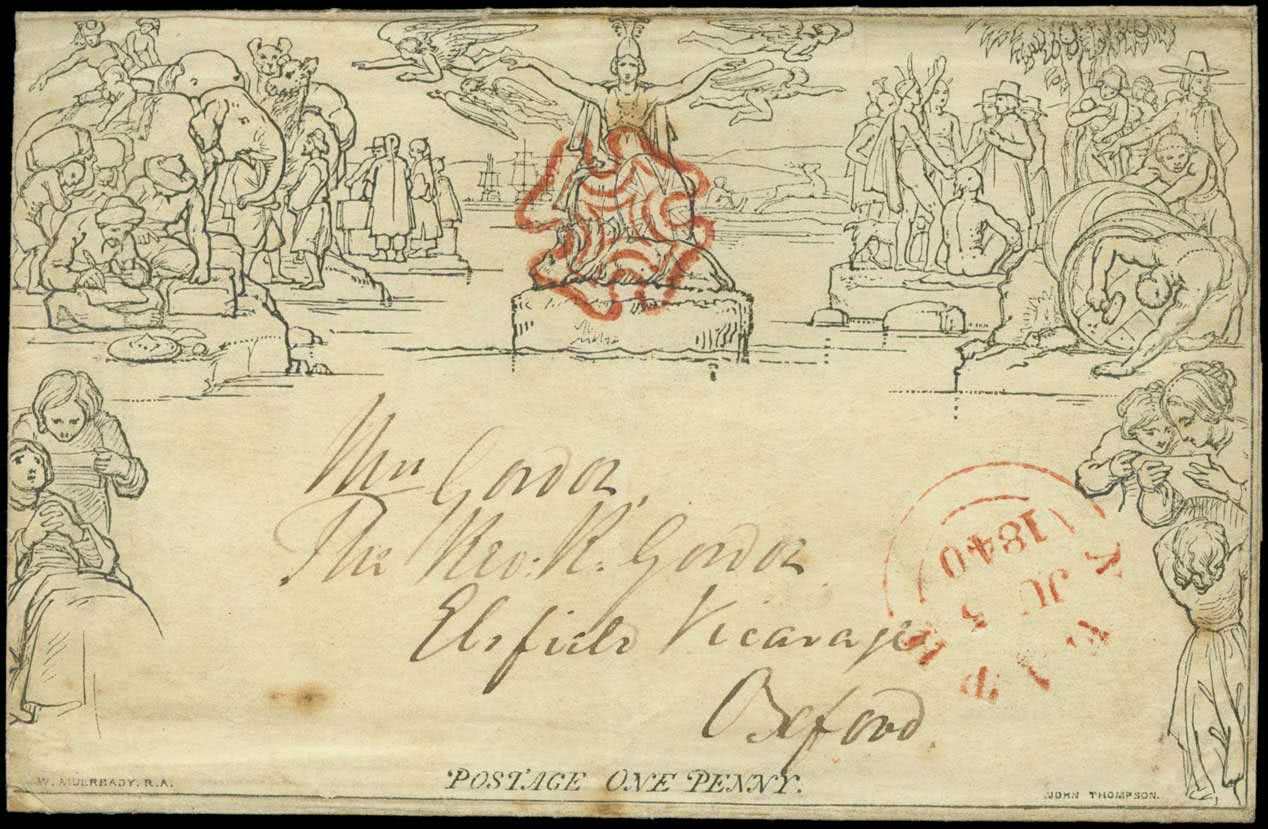 Mrs Gordon,
The Rev: R. Gordon
Elsfield Vicarage
Oxford
1840
JU
POSTAGE ONE PENNY.
W. MULREADY, R.A.
JOHN THOMPSON.